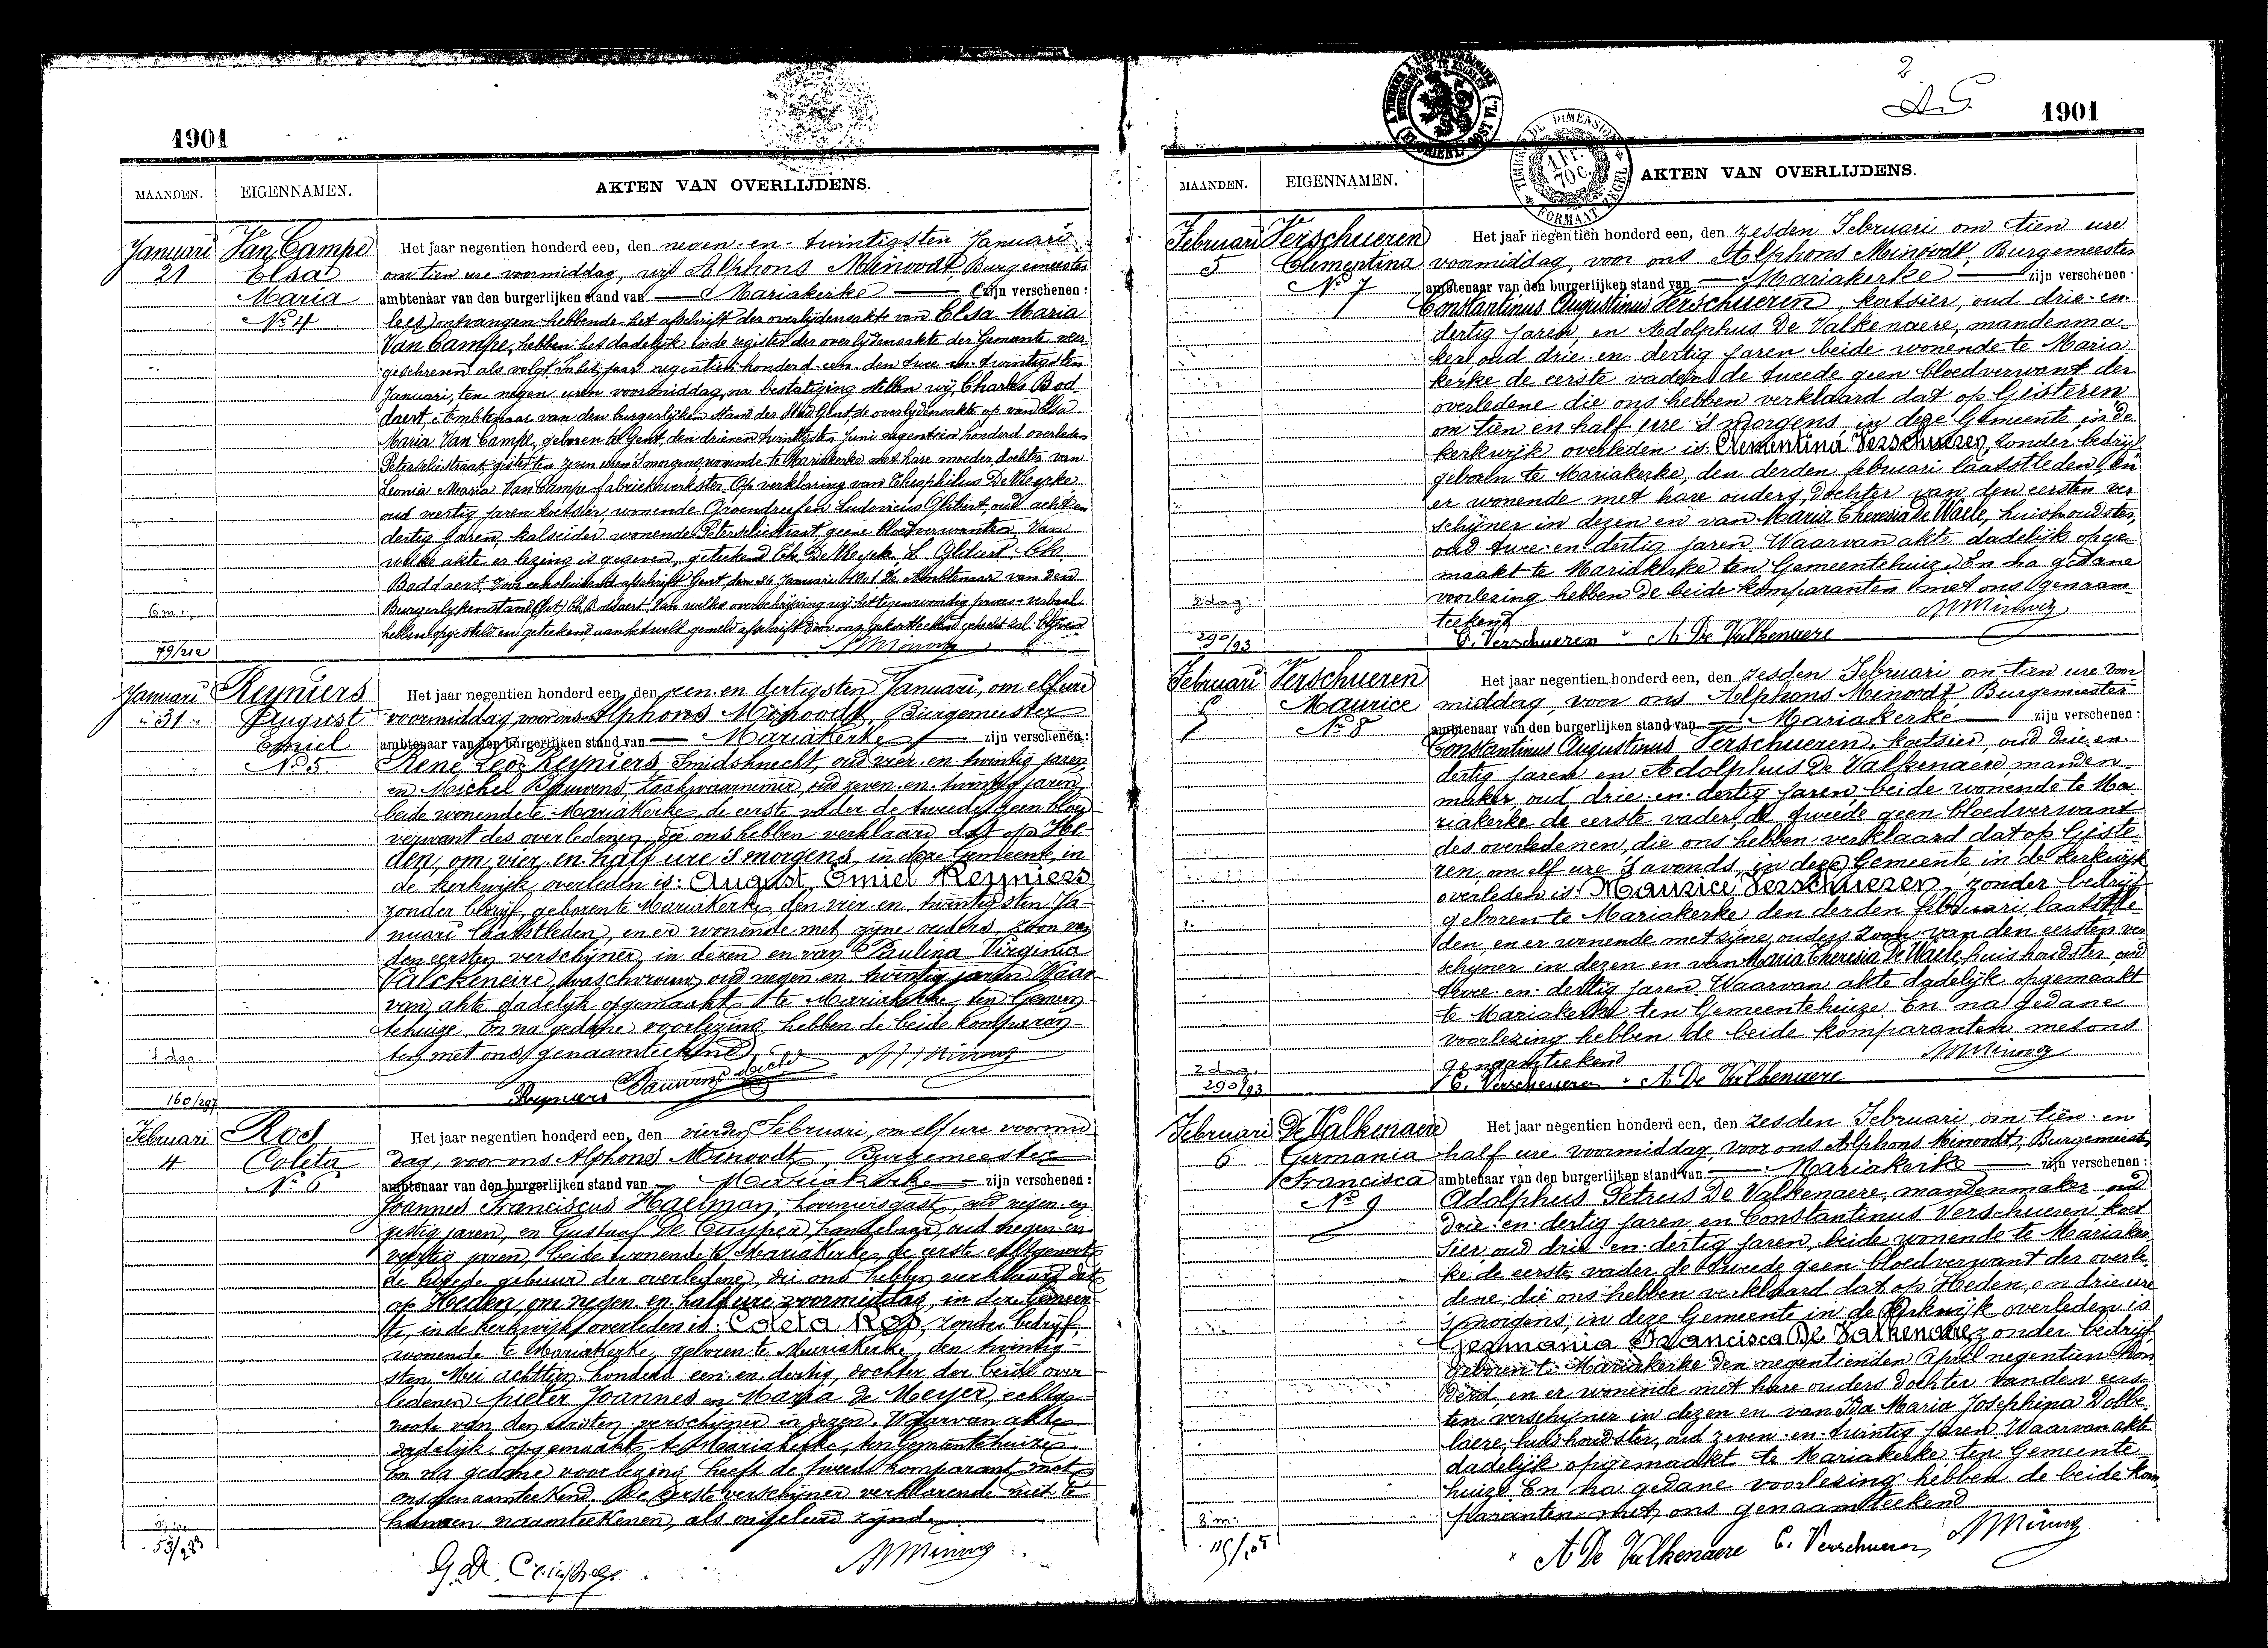 1901
MAANDEN. EIGENNAMEN. AKTEN VAN OVERLIJDENS.
Januari
21
Van Campe
Elsa
Maria
No 4
Het jaar negentien honderd een, den negen-en-twintigsten Januari
om tien ure voormiddag, wij Alphons Minoodt, Burgemeester
ambtenaar van den burgerlijken stand van Mariakerke zijn verschenen:
ontvangen hebbende het afschrift der overlijdensakte van Elsa Maria
Van Campe, hebben het dadelijk in de register der overlijdensakte der Gemeente over
geschreven als volgt: In het jaar negentien honderd een den twee-en-twintigsten
Januari, ten negen uren voormiddag, na bestatiging stellen wij, Charles Bod
daert, Ambtenaar van den burgerlijken stand der Stad Gent de overlijdensakte op van Elsa
Maria Van Campe, geboren te Gent, den drieen twintigsten Juni negentien honderd overleden
Peterseliestraat gisteren ten zeven uren 's morgens wonende te Mariakerke met hare moeder, dochter van
Leonia Maria Van Campe fabriekwerkster. Op verklaring van Theophilus De Meycke
oud veertig jaren koetsier, wonende Groendreef en Ludovicus Ghibert, oud acht en
dertig jaren, wonende Peterseliestraat geene bloedverwanten Van
welke akte er lezing is gegeven, geteekend Th. De Meycke L. Ghibert Ch.
Boddaert. Voor eensluidend afschrift Gent, den 26 Januari 1901 De Ambtenaar van den
Burgerlijkenstand (Get.) Ch. Boddaert. Van welke overschrijving wij het tegenwoordig proces-verbaal
hebben opgesteld en geteekend aan hetwelk gemeld afschrift door ons gekortteekend gehecht zal blijven
6 m.
79/212
Januari
31
Reyniers
August
Emiel
No 5
Het jaar negentien honderd een, den een en dertigsten Januari, om elf ure
voormiddag voor ons Alphons Minoodt, Burgemeester
ambtenaar van den burgerlijken stand van Mariakerke zijn verschenen:
René Leo Reyniers, Smidsknecht, oud vier-en-twintig jaren
en Michel Pauwens, Zaakwaarnemer, oud zeven-en-twintig jaren,
beide wonende te Mariakerke, de eerste vader de tweede geen bloed-
verwant des overledenen, die ons hebben verklaard dat op He-
den, om vier en half ure 's morgens, in deze Gemeente, in
de kerkwijk, overleden is: August Emiel Reyniers
zonder bedrijf, geboren te Mariakerke, den vier-en-twintigsten Ja-
nuari laatstleden, en er wonende met zijne ouders, zoon van
den eersten verschijner in dezen en van Paulina Virginia
Valckeneire, waschvrouw, oud negen-en-twintig jaren. Waar-
van akte dadelijk opgemaakt te Mariakerke, ten Gemeen-
tehuize. En na gedane voorlezing hebben de beide komparan-
ten met ons genaamteekend
7 dag
Reyniers Pauwens
160/297
Februari
4
Ros
Coleta
No 6
Het jaar negentien honderd een, den vierden Februari, om elf ure voormid
dag, voor ons Alphons Minoodt, Burgemeester
ambtenaar van den burgerlijken stand van Mariakerke zijn verschenen:
Joannes Franciscus Haelman, hoveniersgast, oud negen-en-
zestig jaren, en Gustaaf De Cuyper, handelaar, oud negen-en
veertig jaren, beide wonende te Mariakerke, de eerste echtgenoot
de tweede gebuur der overledene, die ons hebben verklaard dat
op Heden, om negen en half ure voormiddag, in deze Gemeen
te, in de kerkwijk, overleden is: Coleta Ros, zonder bedrijf,
wonende te Mariakerke, geboren te Mariakerke, den twintig-
sten Mei achttien honderd een en dertig, dochter der beide over-
ledenen Pieter Joannes en Maria de Meyer, echtge-
noote van den eersten verschijner in dezen. Waarvan akte
dadelijk opgemaakt te Mariakerke, ten Gemeentehuize.
En na gedane voorlezing heeft de tweede komparant met
ons genaamteekend. De eerste verschijner verklarende niet te
kunnen naamteekenen, als ongeleerd zijnde
53/283
G. De Cuyper
2
1901
TIMBRE DE DIMENSION
1 FR. 70 C.
FORMAAT ZEGEL
MAANDEN. EIGENNAMEN. AKTEN VAN OVERLIJDENS.
Februari
5
Verschueren
Clementina
No 7
Het jaar negentien honderd een, den zesden Februari om tien ure
voormiddag, voor ons Alphons Minoodt, Burgemeester
ambtenaar van den burgerlijken stand van Mariakerke zijn verschenen:
Constantinus Augustinus Verschueren, koetsier, oud drie-en-
dertig jaren, en Adolphus De Valkenaere, mandenma-
ker oud drie-en-dertig jaren beide wonende te Maria
kerke de eerste vader de tweede geen bloedverwant der
overledene die ons hebben verklaard dat op Gisteren
om tien en half ure 's morgens in deze Gemeente, in de
kerkwijk overleden is: Clementina Verschueren, zonder bedrijf
geboren te Mariakerke, den derden februari laatstleden en
er wonende met hare ouders, Dochter van den eersten ver
schijner in dezen en van Maria Theresia De Waele, huishoudster,
oud twee-en-dertig jaren. Waarvan akte dadelijk opge-
maakt te Mariakerke ten Gemeentehuize. En na gedane
voorlezing hebben De beide komparanten met ons genaam-
teekend
2 dag
C. Verschueren A. De Valkenaere
290/93
Februari
5
Verschueren
Maurice
No 8
Het jaar negentien honderd een, den zesden Februari om tien ure voor
middag, voor ons Alphons Minoodt, Burgemeester
ambtenaar van den burgerlijken stand van Mariakerke zijn verschenen:
Constantinus Augustinus Verschueren, koetsier, oud drie-en-
dertig jaren en Adolphus De Valkenaere, manden-
maker oud drie-en-dertig jaren, beide wonende te Ma-
riakerke de eerste vader, de tweede geen bloedverwant
des overledenen, die ons hebben verklaard dat op Giste-
ren om elf ure 's avonds, in deze Gemeente in de kerkwijk
overleden is: Maurice Verschueren, zonder bedrijf
geboren te Mariakerke den derden februari laatstle-
den, en er wonende met zijne ouders Zoon van den eersten ver
schijner in dezen en van Maria Theresia De Waele, huishoudster, oud
twee-en-dertig jaren. Waarvan akte dadelijk opgemaakt
te Mariakerke ten Gemeentehuize. En na gedane
voorlezing hebben de beide komparanten met ons
genaamteekend
2 dag
C. Verschueren A. De Valkenaere
290/93
Februari
6
De Valkenaere
Germania
Francisca
No 9
Het jaar negentien honderd een, den zesden Februari, om tien en
half ure voormiddag, voor ons Alphons Minoodt, Burgemeester
ambtenaar van den burgerlijken stand van Mariakerke zijn verschenen:
Adolphus Petrus De Valkenaere, mandenmaker, oud
drie-en-dertig jaren en Constantinus Verschueren, koet
sier oud drie-en-dertig jaren, beide wonende te Mariaker
ke de eerste vader de tweede geen bloedverwant der overle-
dene, die ons hebben verklaard dat op Heden, om drie ure
's morgens, in deze Gemeente in de Kerkwijk overleden is
Germania Francisca De Valkenaere, zonder bedrijf
geboren te Mariakerke den negentienden April negentien hon
derd, en er wonende met hare ouders Dochter van den eers-
ten verschijner in dezen en van Ida Maria Josephina Dobbe-
laere, huishoudster, oud zeven-en-twintig jaren. Waarvan akte
dadelijk opgemaakt te Mariakerke ten Gemeente-
huize. En na gedane voorlezing hebben de beide kom-
paranten met ons genaamteekend
8 m.
A De Valkenaere C. Verschueren